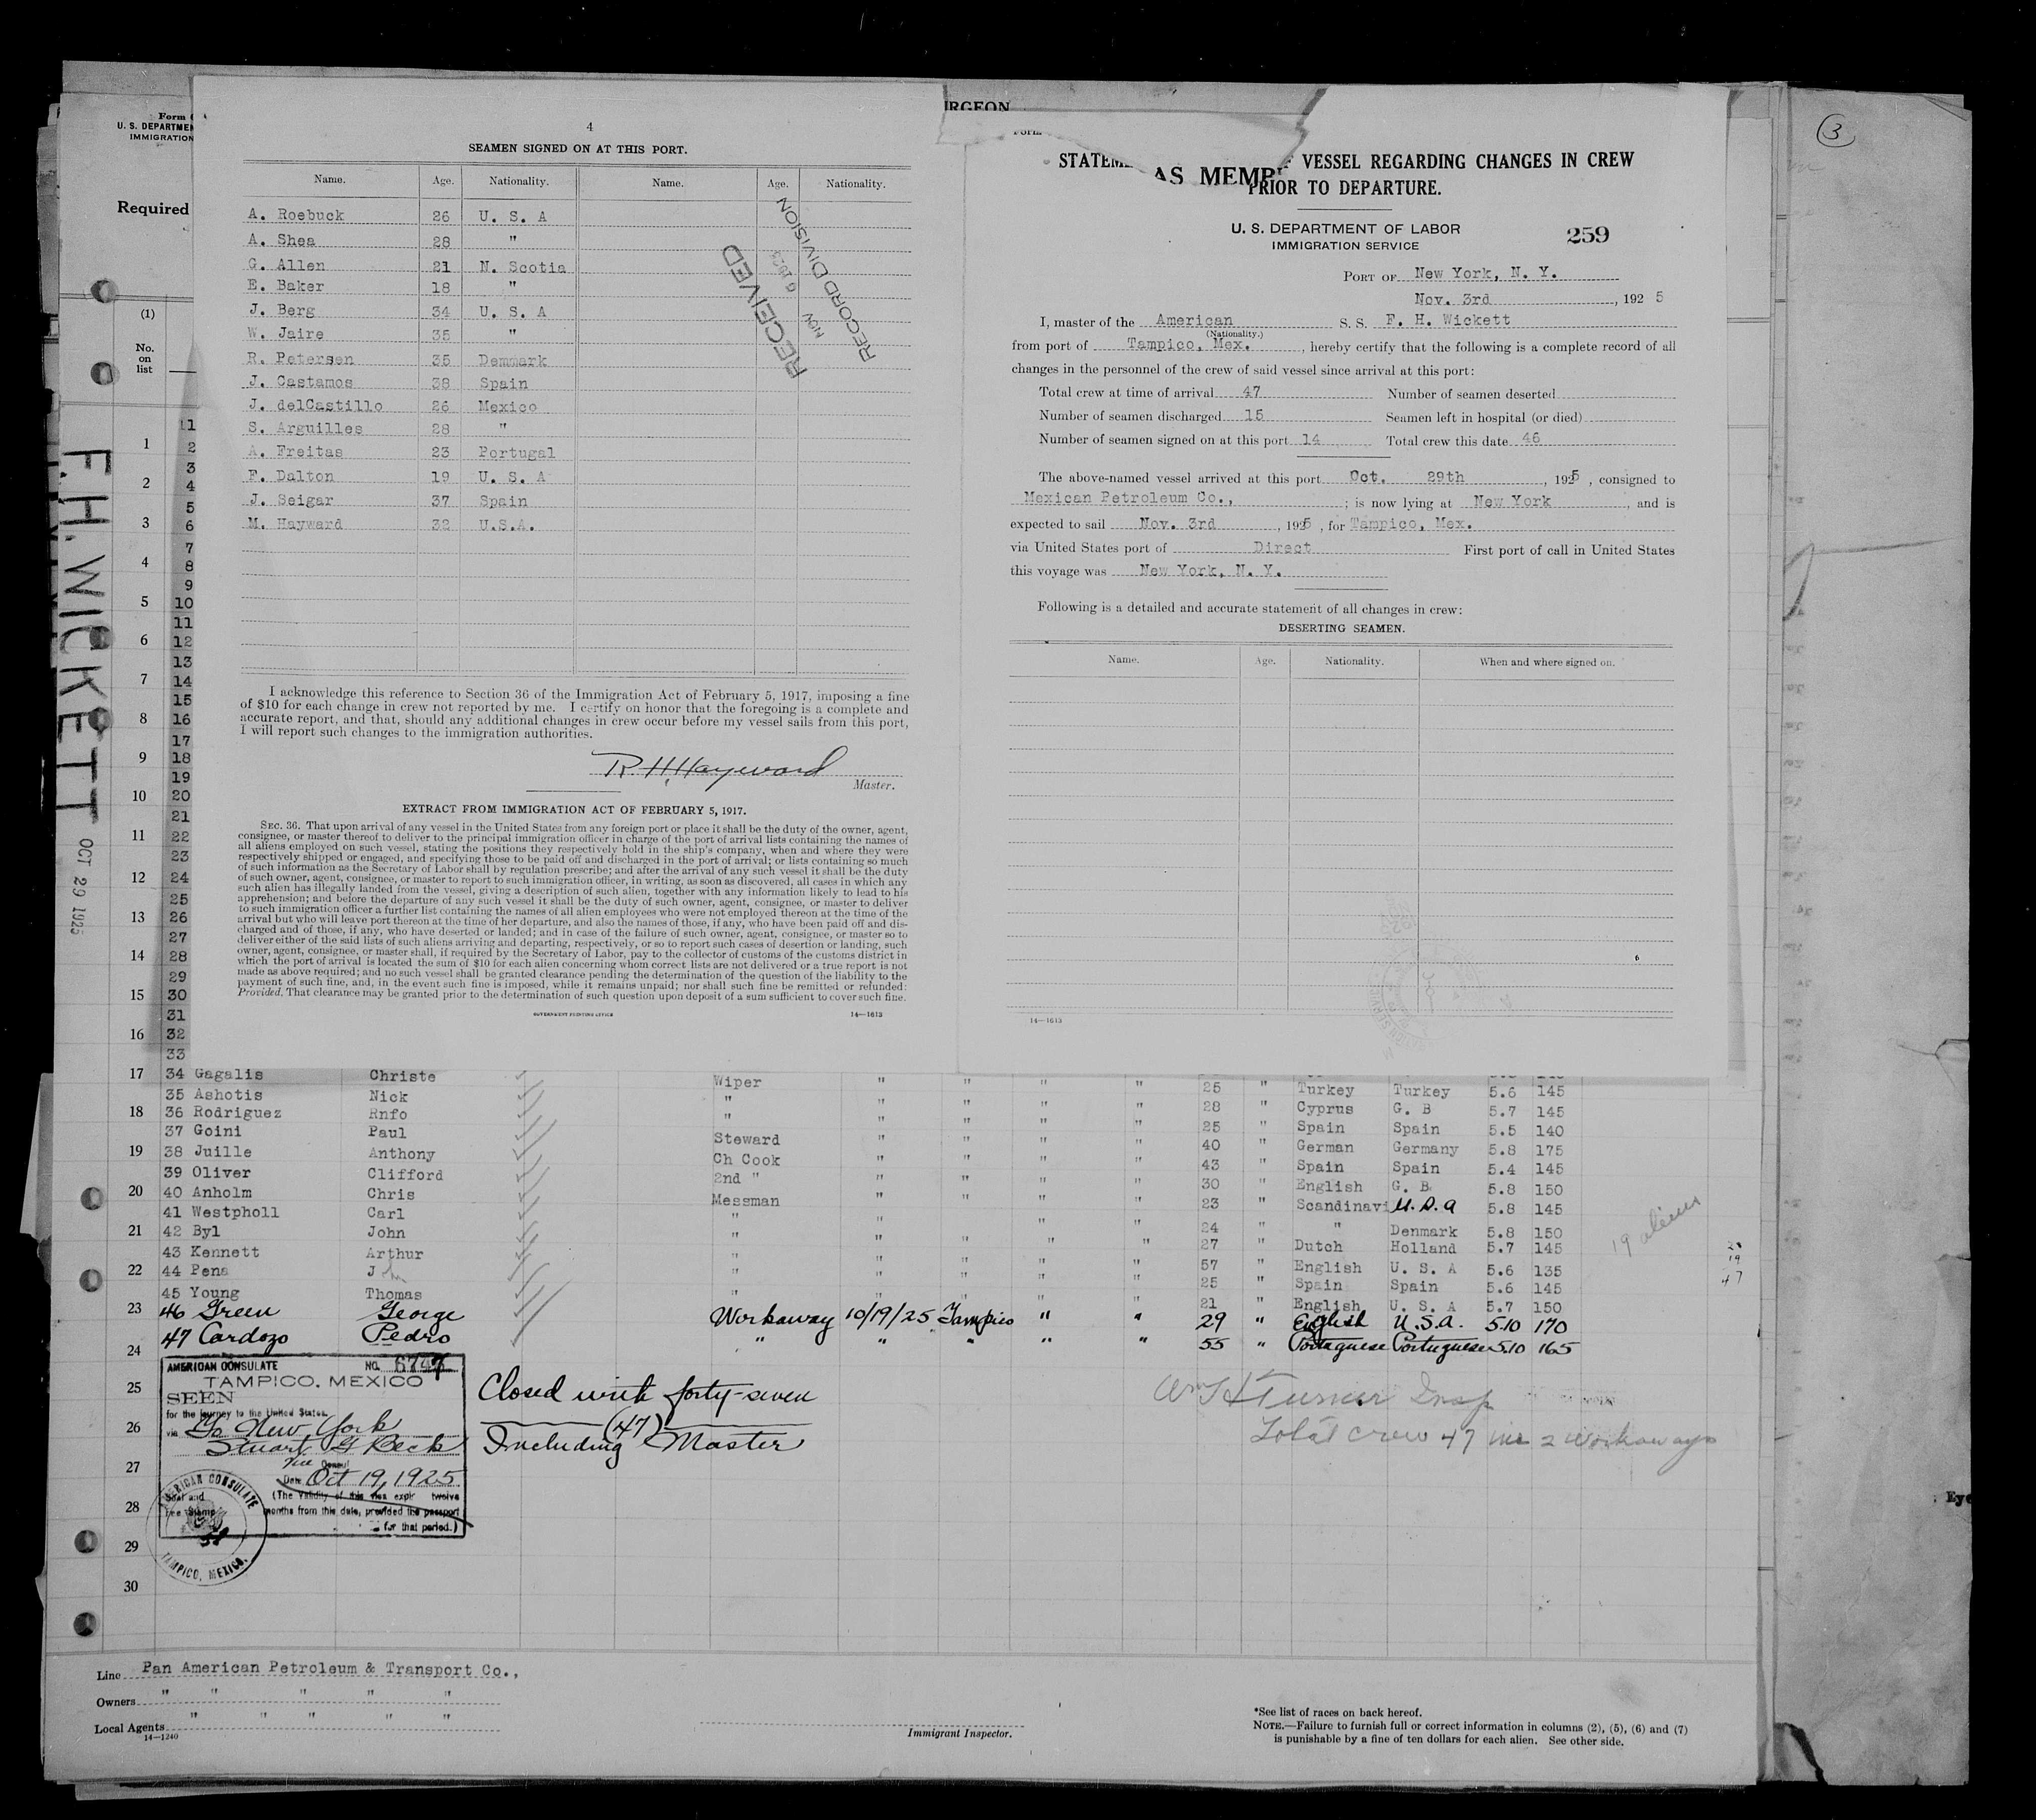 4
SEAMEN SIGNED ON AT THIS PORT.
Name. Age. Nationality. Name. Age. Nationality.
A. Roebuck 26 U. S. A
A. Shea 28 "
G. Allen 21 N. Scotia
E. Baker 18 "
J. Berg 34 U. S. A
W. Jaire 35 "
R. Petersen 35 Denmark
J. Castamos 38 Spain
J. delCastillo 26 Mexico
S. Arguilles 28 "
A. Freitas 23 Portugal
F. Dalton 19 U. S. A
J. Seigar 37 Spain
M. Hayward 32 U.S.A.
RECEIVED
NOV 1925
RECORD DIVISION
I acknowledge this reference to Section 36 of the Immigration Act of February 5, 1917, imposing a fine
of $10 for each change in crew not reported by me. I certify on honor that the foregoing is a complete and
accurate report, and that, should any additional changes in crew occur before my vessel sails from this port,
I will report such changes to the immigration authorities.
R. H. Hayward
Master.
EXTRACT FROM IMMIGRATION ACT OF FEBRUARY 5, 1917.
SEC. 36. That upon arrival of any vessel in the United States from any foreign port or place it shall be the duty of the owner, agent,
consignee, or master thereof to deliver to the principal immigration officer in charge of the port of arrival lists containing the names of
all aliens employed on such vessel, stating the positions they respectively hold in the ship's company, when and where they were
respectively shipped or engaged, and specifying those to be paid off and discharged in the port of arrival; or lists containing so much
of such information as the Secretary of Labor shall by regulation prescribe; and after the arrival of any such vessel it shall be the duty
of such owner, agent, consignee, or master to report to such immigration officer, in writing, as soon as discovered, all cases in which any
such alien has illegally landed from the vessel, giving a description of such alien, together with any information likely to lead to his
apprehension; and before the departure of any such vessel it shall be the duty of such owner, agent, consignee, or master to deliver
to such immigration officer a further list containing the names of all alien employees who were not employed thereon at the time of the
arrival but who will leave port thereon at the time of her departure, and also the names of those, if any, who have been paid off and dis-
charged and of those, if any, who have deserted or landed; and in case of the failure of such owner, agent, consignee, or master so to
deliver either of the said lists of such aliens arriving and departing, respectively, or so to report such cases of desertion or landing, such
owner, agent, consignee, or master shall, if required by the Secretary of Labor, pay to the collector of customs of the customs district in
which the port of arrival is located the sum of $10 for each alien concerning whom correct lists are not delivered or a true report is not
made as above required; and no such vessel shall be granted clearance pending the determination of the question of the liability to the
payment of such fine, and, in the event such fine is imposed, while it remains unpaid; nor shall such fine be remitted or refunded:
Provided, That clearance may be granted prior to the determination of such question upon deposit of a sum sufficient to cover such fine.
GOVERNMENT PRINTING OFFICE 14—1613
RGEON
AS MEMB
VESSEL REGARDING CHANGES IN CREW
PRIOR TO DEPARTURE.
U. S. DEPARTMENT OF LABOR
IMMIGRATION SERVICE
259
PORT OF New York, N. Y.
Nov. 3rd , 192 5
I, master of the American S. S. F. H. Wickett
(Nationality.)
from port of Tampico, Mex. , hereby certify that the following is a complete record of all
changes in the personnel of the crew of said vessel since arrival at this port:
Total crew at time of arrival 47 Number of seamen deserted
Number of seamen discharged 15 Seamen left in hospital (or died)
Number of seamen signed on at this port 14 Total crew this date 46
The above-named vessel arrived at this port Oct. 29th , 1925 , consigned to
Mexican Petroleum Co., ; is now lying at New York , and is
expected to sail Nov. 3rd , 1925 , for Tampico, Mex.
via United States port of Direct First port of call in United States
this voyage was New York, N. Y.
Following is a detailed and accurate statement of all changes in crew:
DESERTING SEAMEN.
Name. Age. Nationality. When and where signed on.
14—1613
3
Form
U. S. DEPARTMEN
IMMIGRATION
Required
(1)
No.
on
list
F. H. WICKETT
OCT 29 1925
1 2 3 4 5 6 7 8 9 10 11 12 13 14 15 16 17 18 19 20 21 22 23 24 25 26 27 28 29 30
11 2 3 4 5 6 7 8 9 10 11 12 13 14 15 16 17 18 19 20 21 22 23 24 25 26 27 28 29 30 31 32 33
34 Gagalis Christe Wiper " " " " 25 " Turkey Turkey 5.6 145
35 Ashotis Nick " " " " " 28 " Cyprus G. B 5.7 145
36 Rodriguez Rnfo " " " " " 25 " Spain Spain 5.5 140
37 Goini Paul Steward " " " " 40 " German Germany 5.8 175
38 Juille Anthony Ch Cook " " " " 43 " Spain Spain 5.4 145
39 Oliver Clifford 2nd " " " " " 30 " English G. B 5.8 150
40 Anholm Chris Messman " " " " 23 " Scandinavi U.S.A 5.8 145
41 Westpholl Carl " " " " 24 " " Denmark 5.8 150
42 Byl John " " " " " 27 " Dutch Holland 5.7 145
43 Kennett Arthur " " " " " 57 " English U. S. A 5.6 135
44 Pena J " " " " " 25 " Spain Spain 5.6 145
45 Young Thomas " " " " " 21 " English U. S. A 5.7 150
46 Green George Workaway 10/19/25 Tampico " " 29 " English U.S.A. 5.10 170
47 Cardozo Pedro " " " " " 55 " Portuguese Portuguese 5.10 165
19 aliens
19
47
AMERICAN CONSULATE NO. 6747
TAMPICO, MEXICO
SEEN
for the journey to the United States.
via To New York
Stuart G Beck
Vice Consul
Date Oct 19, 1925
(The validity of this visa expir twelve
months from this date, provided the passport
for that period.)
Seal and
Fee Stamp
AMERICAN CONSULATE
TAMPICO, MEXICO.
Closed with forty-seven
(47)
Including Master
Wm H Turner Insp
Total crew 47 inc 2 workaways
Eye
Line Pan American Petroleum & Transport Co.,
Owners " " " " "
Local Agents " " " " "
14—1240
Immigrant Inspector.
*See list of races on back hereof.
NOTE.—Failure to furnish full or correct information in columns (2), (5), (6) and (7)
is punishable by a fine of ten dollars for each alien. See other side.